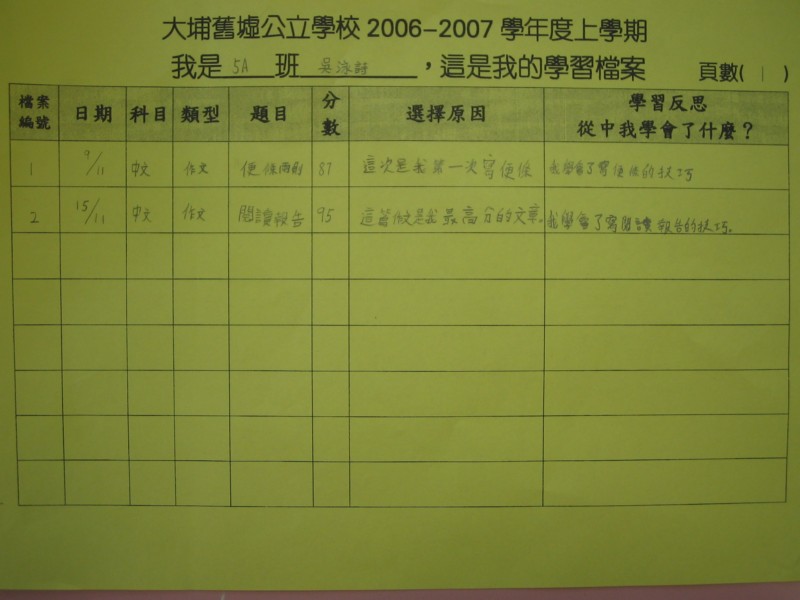 大埔舊墟公立學校 2006-2007 學年度上學期
我是 5A 班 吳泳詩 ，這是我的學習檔案 頁數( 1 )
檔案編號 日期 科目 類型 題目 分數 選擇原因 學習反思 從中我學會了什麼？
1 9/11 中文 作文 便條兩則 87 這次是我第一次寫便條 我學會了寫便條的技巧
2 15/11 中文 作文 閱讀報告 95 這篇做是我最高分的文章。 我學會了寫閱讀報告的技巧。